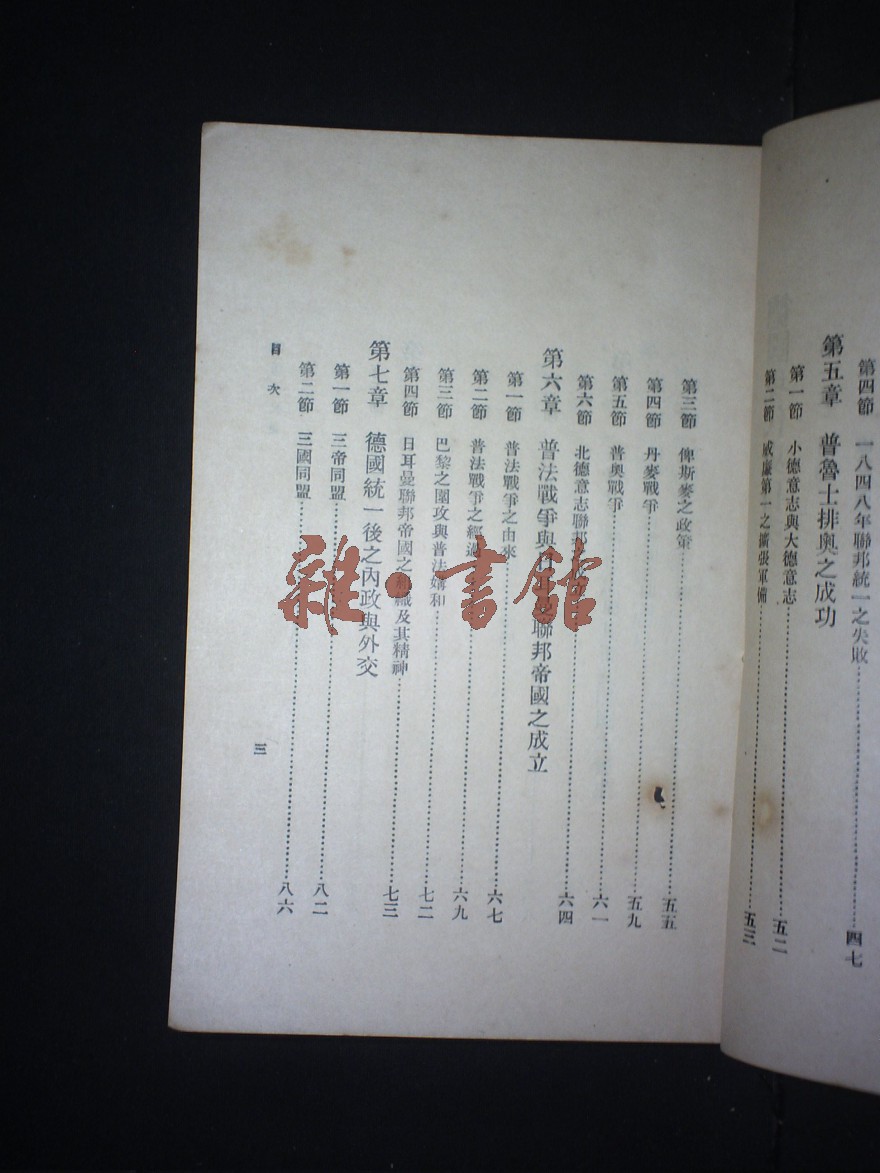 第四節 一八四八年聯邦統一之失敗 四七
第五章 普魯士排奧之成功
第一節 小德意志與大德意志 五二
第二節 威廉第一之擴張軍備 五三
第三節 俾斯麥之政策 五五
第四節 丹麥戰爭 五九
第五節 普奧戰爭 六一
第六節 北德意志聯邦 六四
第六章 普法戰爭與 聯邦帝國之成立
第一節 普法戰爭之由來 六七
第二節 普法戰爭之經過 六九
第三節 巴黎之圍攻與普法媾和 七二
第四節 日耳曼聯邦帝國之組織及其精神 七三
第七章 德國統一後之內政與外交
第一節 三帝同盟 八二
第二節 三國同盟 八六
目次
三
雜·書館